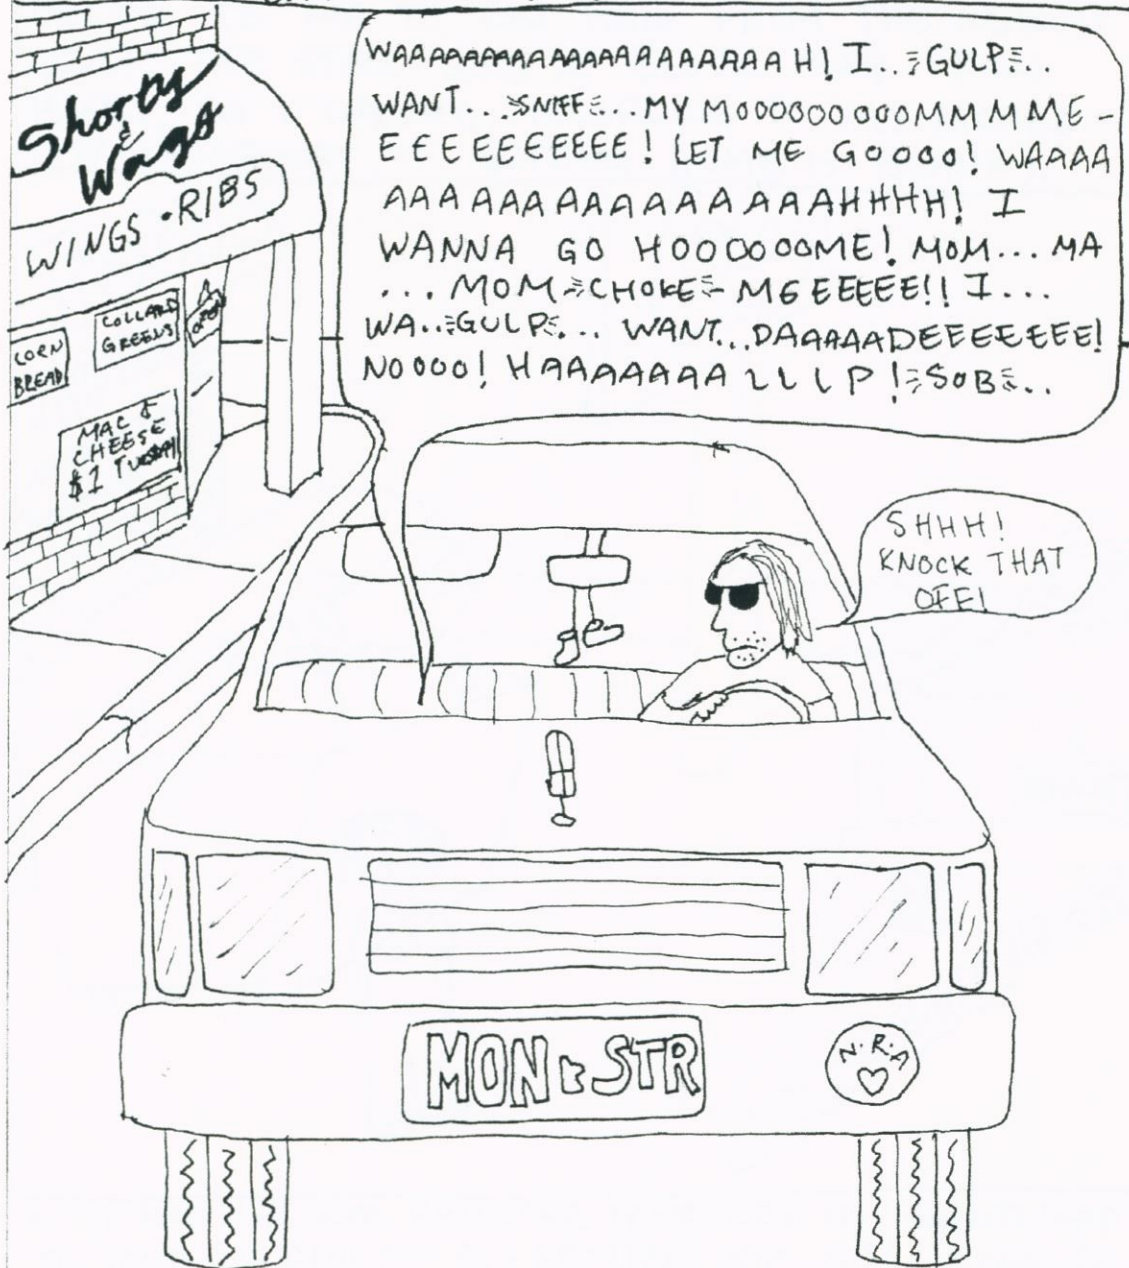 Shorty
&
Wags
WINGS • RIBS
CORN
BREAD
COLLARD
GREENS
OPEN
MAC &
CHEESE
$1 TUESDAY
WAAAAAAAAAAAAAAAAAAAAAAAH! I.. GULP..
WANT... SNIFF... MY MOOOOOOOOOMMMME-
EEEEEEEEEEE! LET ME GOOOO! WAAAA
AAAAAAAAAAAAAAAAAHHHH! I
WANNA GO HOOOOOOME! MOM... MA
... MOM - CHOKE - MEEEEEE!! I...
WA.. GULP... WANT... DAAAAADEEEEEEEE!
NOOOO! HAAAAAAAALLLLP! SOB..
SHHH!
KNOCK THAT
OFF!
MON STR
N.R.A